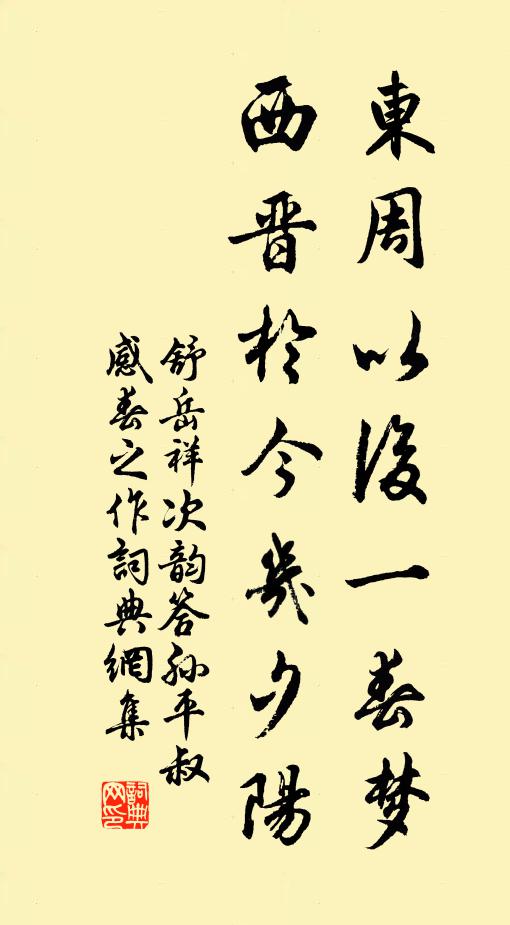 東周以後一春梦
西晋於今幾夕陽
舒岳祥次韵答孙平叔
感春之作詞典網集
詞典
网印